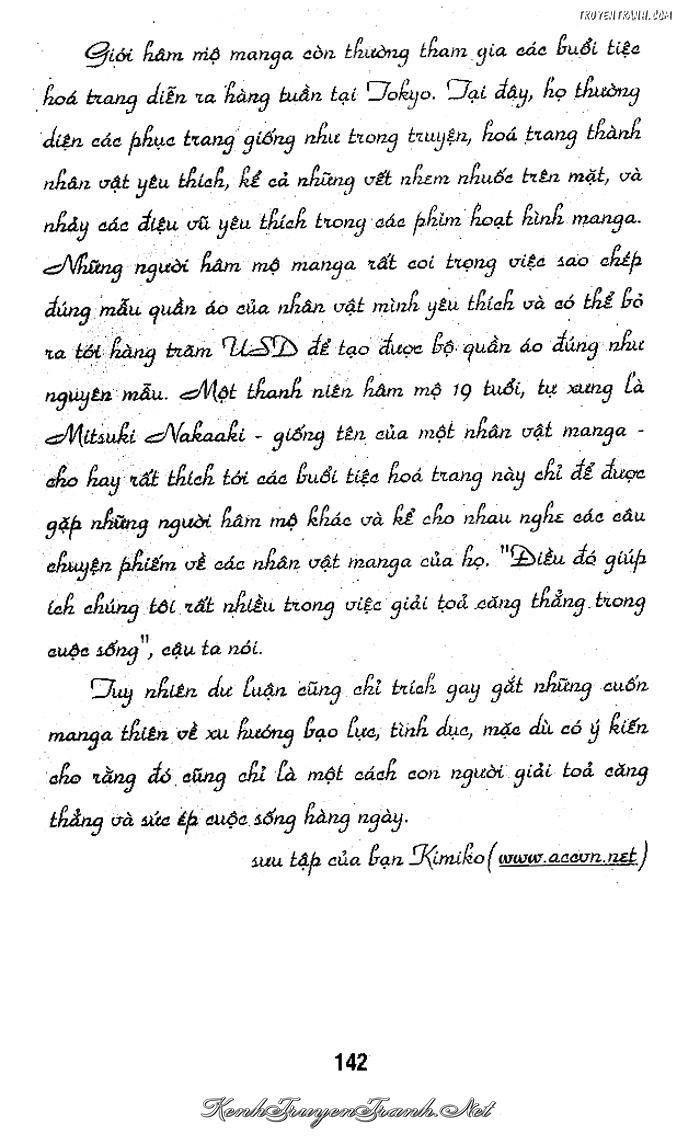 TRUYENTRANH.COM
Giới hâm mộ manga còn thường tham gia các buổi tiệc
hoá trang diễn ra hàng tuần tại Tokyo. Tại đây, họ thường
diện các phục trang giống như trong truyện, hoá trang thành
nhân vật yêu thích, kể cả những vết nhem nhuốc trên mặt, và
nhảy các điệu vũ yêu thích trong các phim hoạt hình manga.
Những người hâm mộ manga rất coi trọng việc sao chép
đúng mẫu quần áo của nhân vật mình yêu thích và có thể bỏ
ra tới hàng trăm USD để tạo được bộ quần áo đúng như
nguyên mẫu. Một thanh niên hâm mộ 19 tuổi, tự xưng là
Mitsuki Nakaaki - giống tên của một nhân vật manga -
cho hay rất thích tới các buổi tiệc hoá trang này chỉ để được
gặp những người hâm mộ khác và kể cho nhau nghe các câu
chuyện phiếm về các nhân vật manga của họ. "Điều đó giúp
ích chúng tôi rất nhiều trong việc giải toả căng thẳng trong
cuộc sống", cậu ta nói.
Tuy nhiên dư luận cũng chỉ trích gay gắt những cuốn
manga thiên về xu hướng bạo lực, tình dục, mặc dù có ý kiến
cho rằng đó cũng chỉ là một cách con người giải toả căng
thẳng và sức ép cuộc sống hàng ngày.
sưu tập của bạn Kimiko (www.accvn.net)
142
KenhTruyenTranh.Net